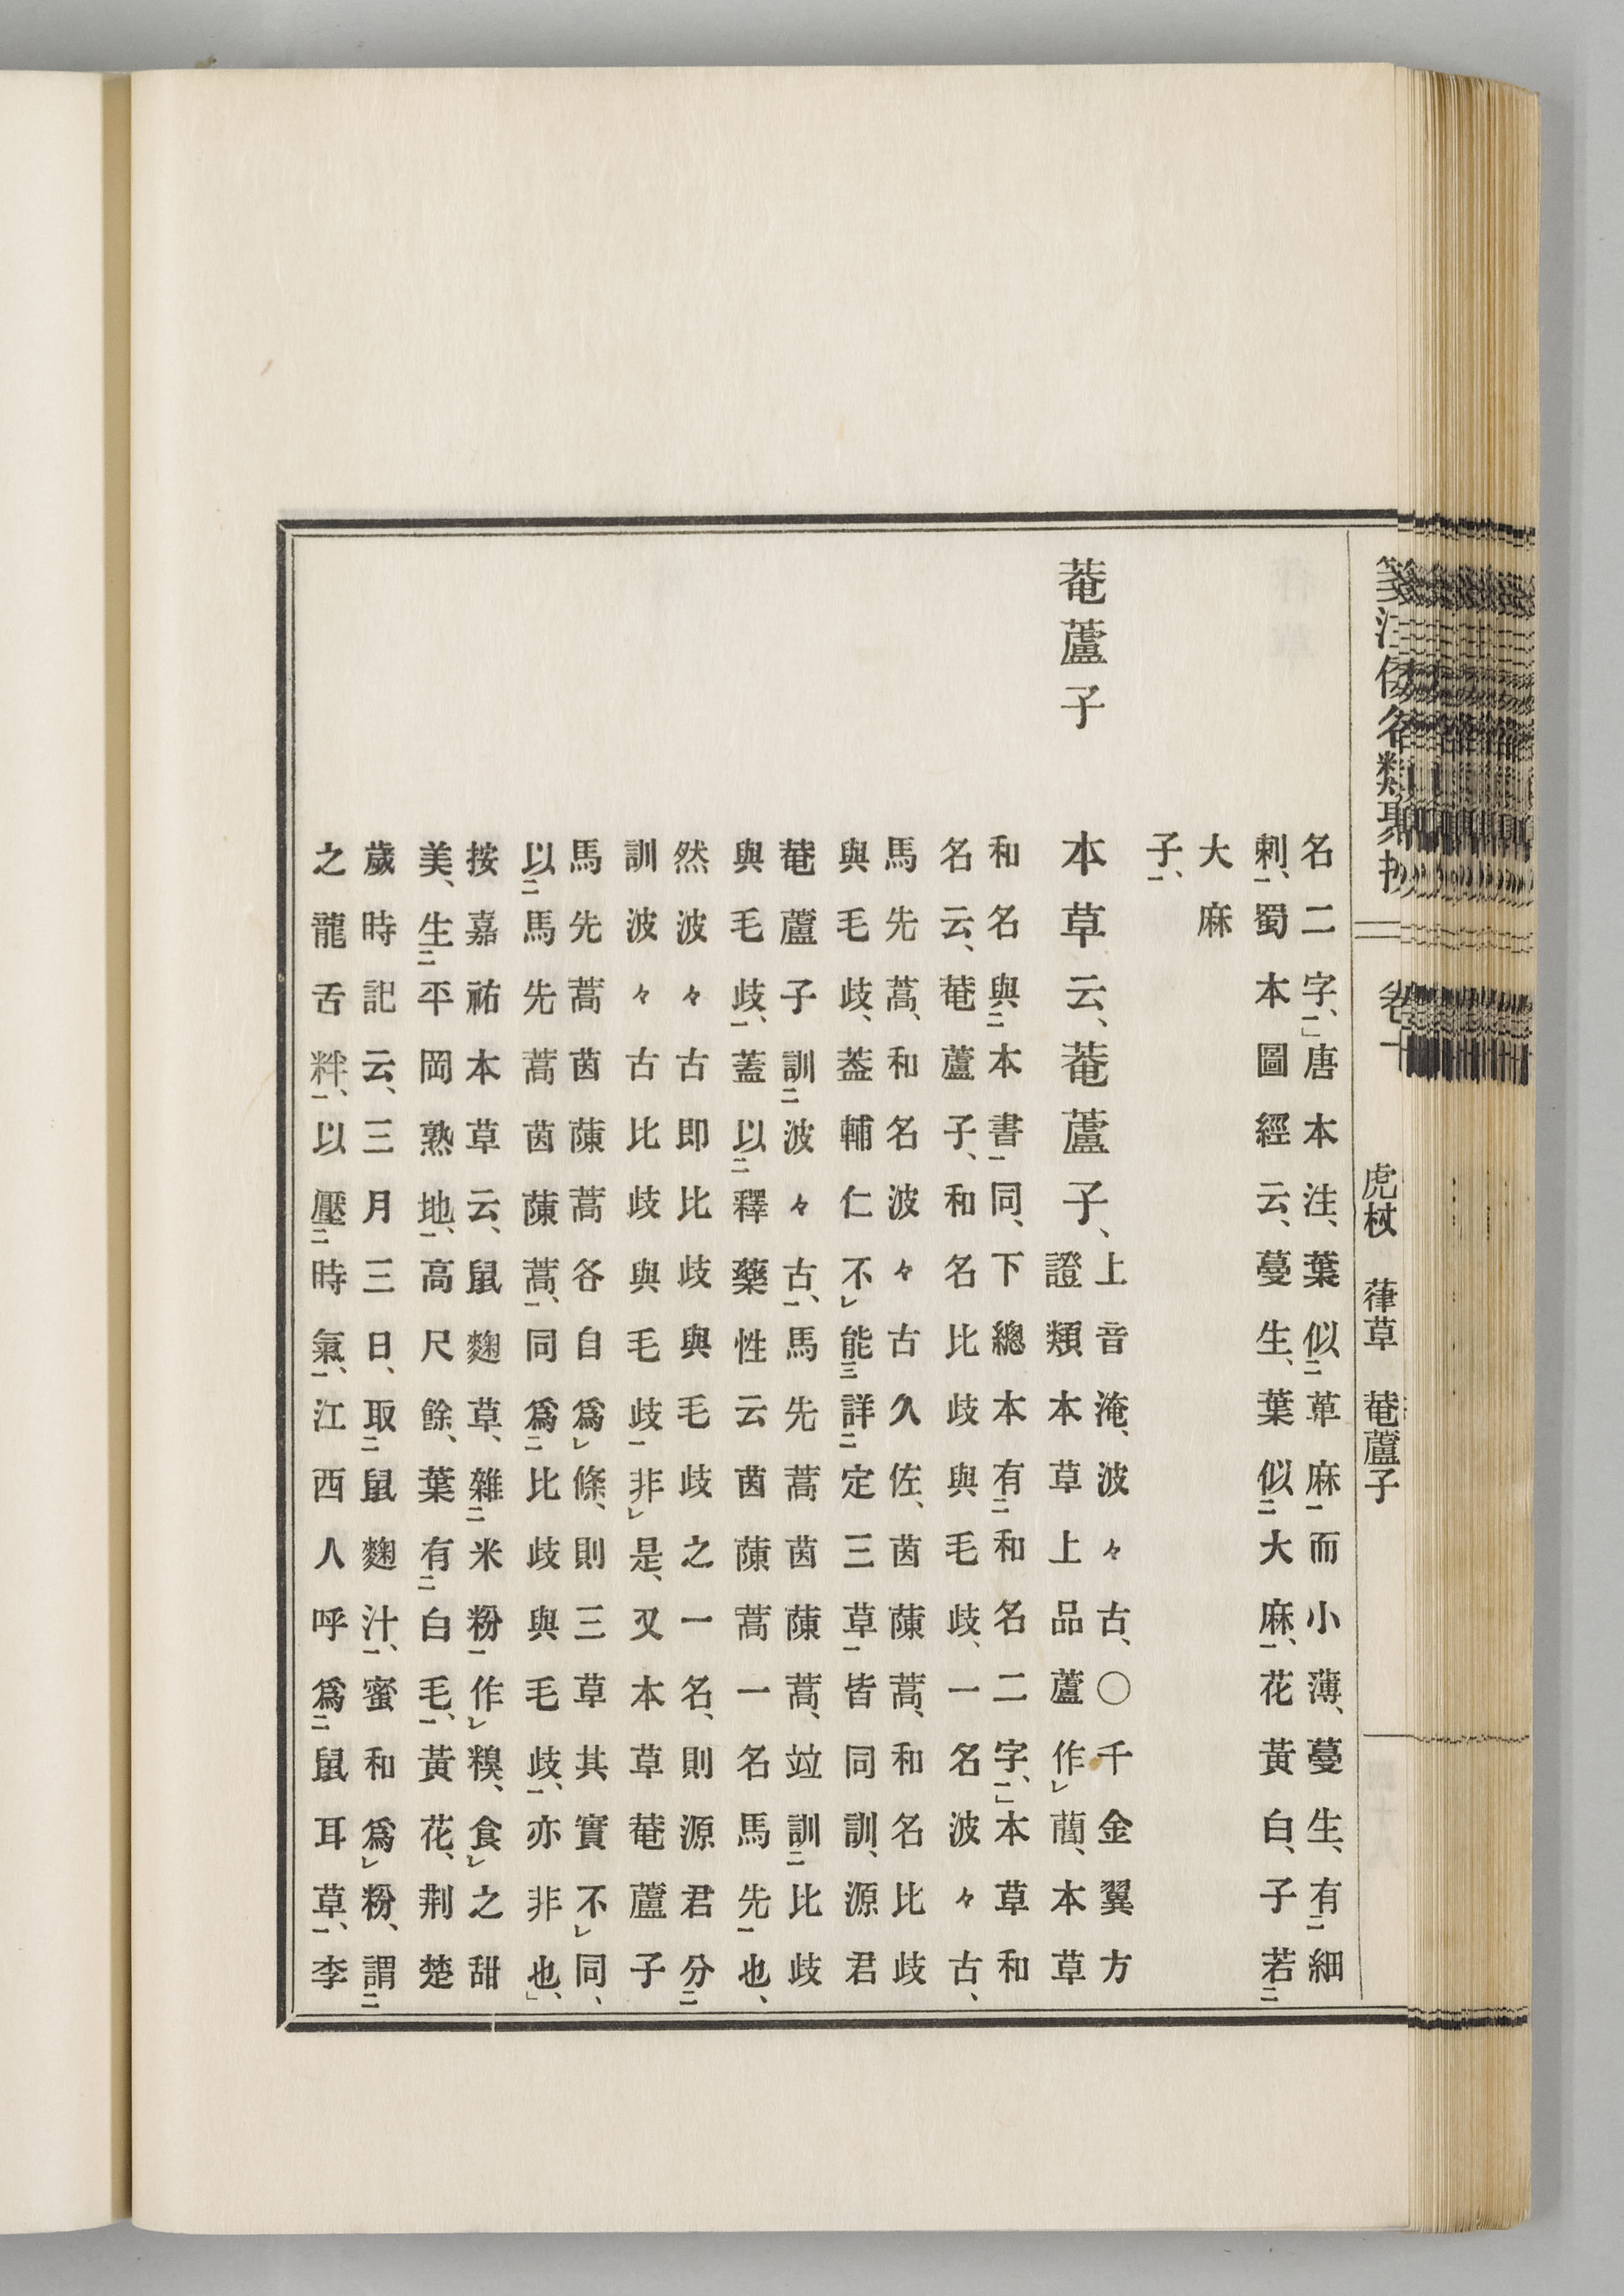 箋注倭名類聚抄 卷十 虎杖 葎草 菴蘆子
名二字、」唐本注、葉似萆麻而小薄、蔓生、有細
刺、蜀本圖經云、蔓生、葉似大麻、花黃白、子若
大麻
子、
菴蘆子
本草云、菴蘆子、
上音淹、波々古、○千金翼方
證類本草上品蘆作䕡、本草
和名與本書同、下總本有和名二字、」本草和
名云、菴蘆子、和名比歧與毛歧、一名波々古、
馬先蒿、和名波々古久佐、茵蔯蒿、和名比歧
與毛歧、葢輔仁不能詳定三草皆同訓、源君
菴蘆子訓波々古、馬先蒿茵蔯蒿、竝訓比歧
與毛歧、蓋以釋藥性云茵蔯蒿一名馬先也、
然波々古卽比歧與毛歧之一名、則源君分
訓波々古比歧與毛歧非是、又本草菴蘆子
馬先蒿茵蔯蒿各自爲條、則三草其實不同、
以馬先蒿茵蔯蒿、同爲比歧與毛歧、亦非也、」
按嘉祐本草云、鼠麴草、雜米粉作糗、食之甜
美、生平岡熟地、高尺餘、葉有白毛、黃花、荆楚
歲時記云、三月三日、取鼠麴汁、蜜和爲粉、謂
之龍舌䉽、以壓時氣、江西人呼爲鼠耳草、李